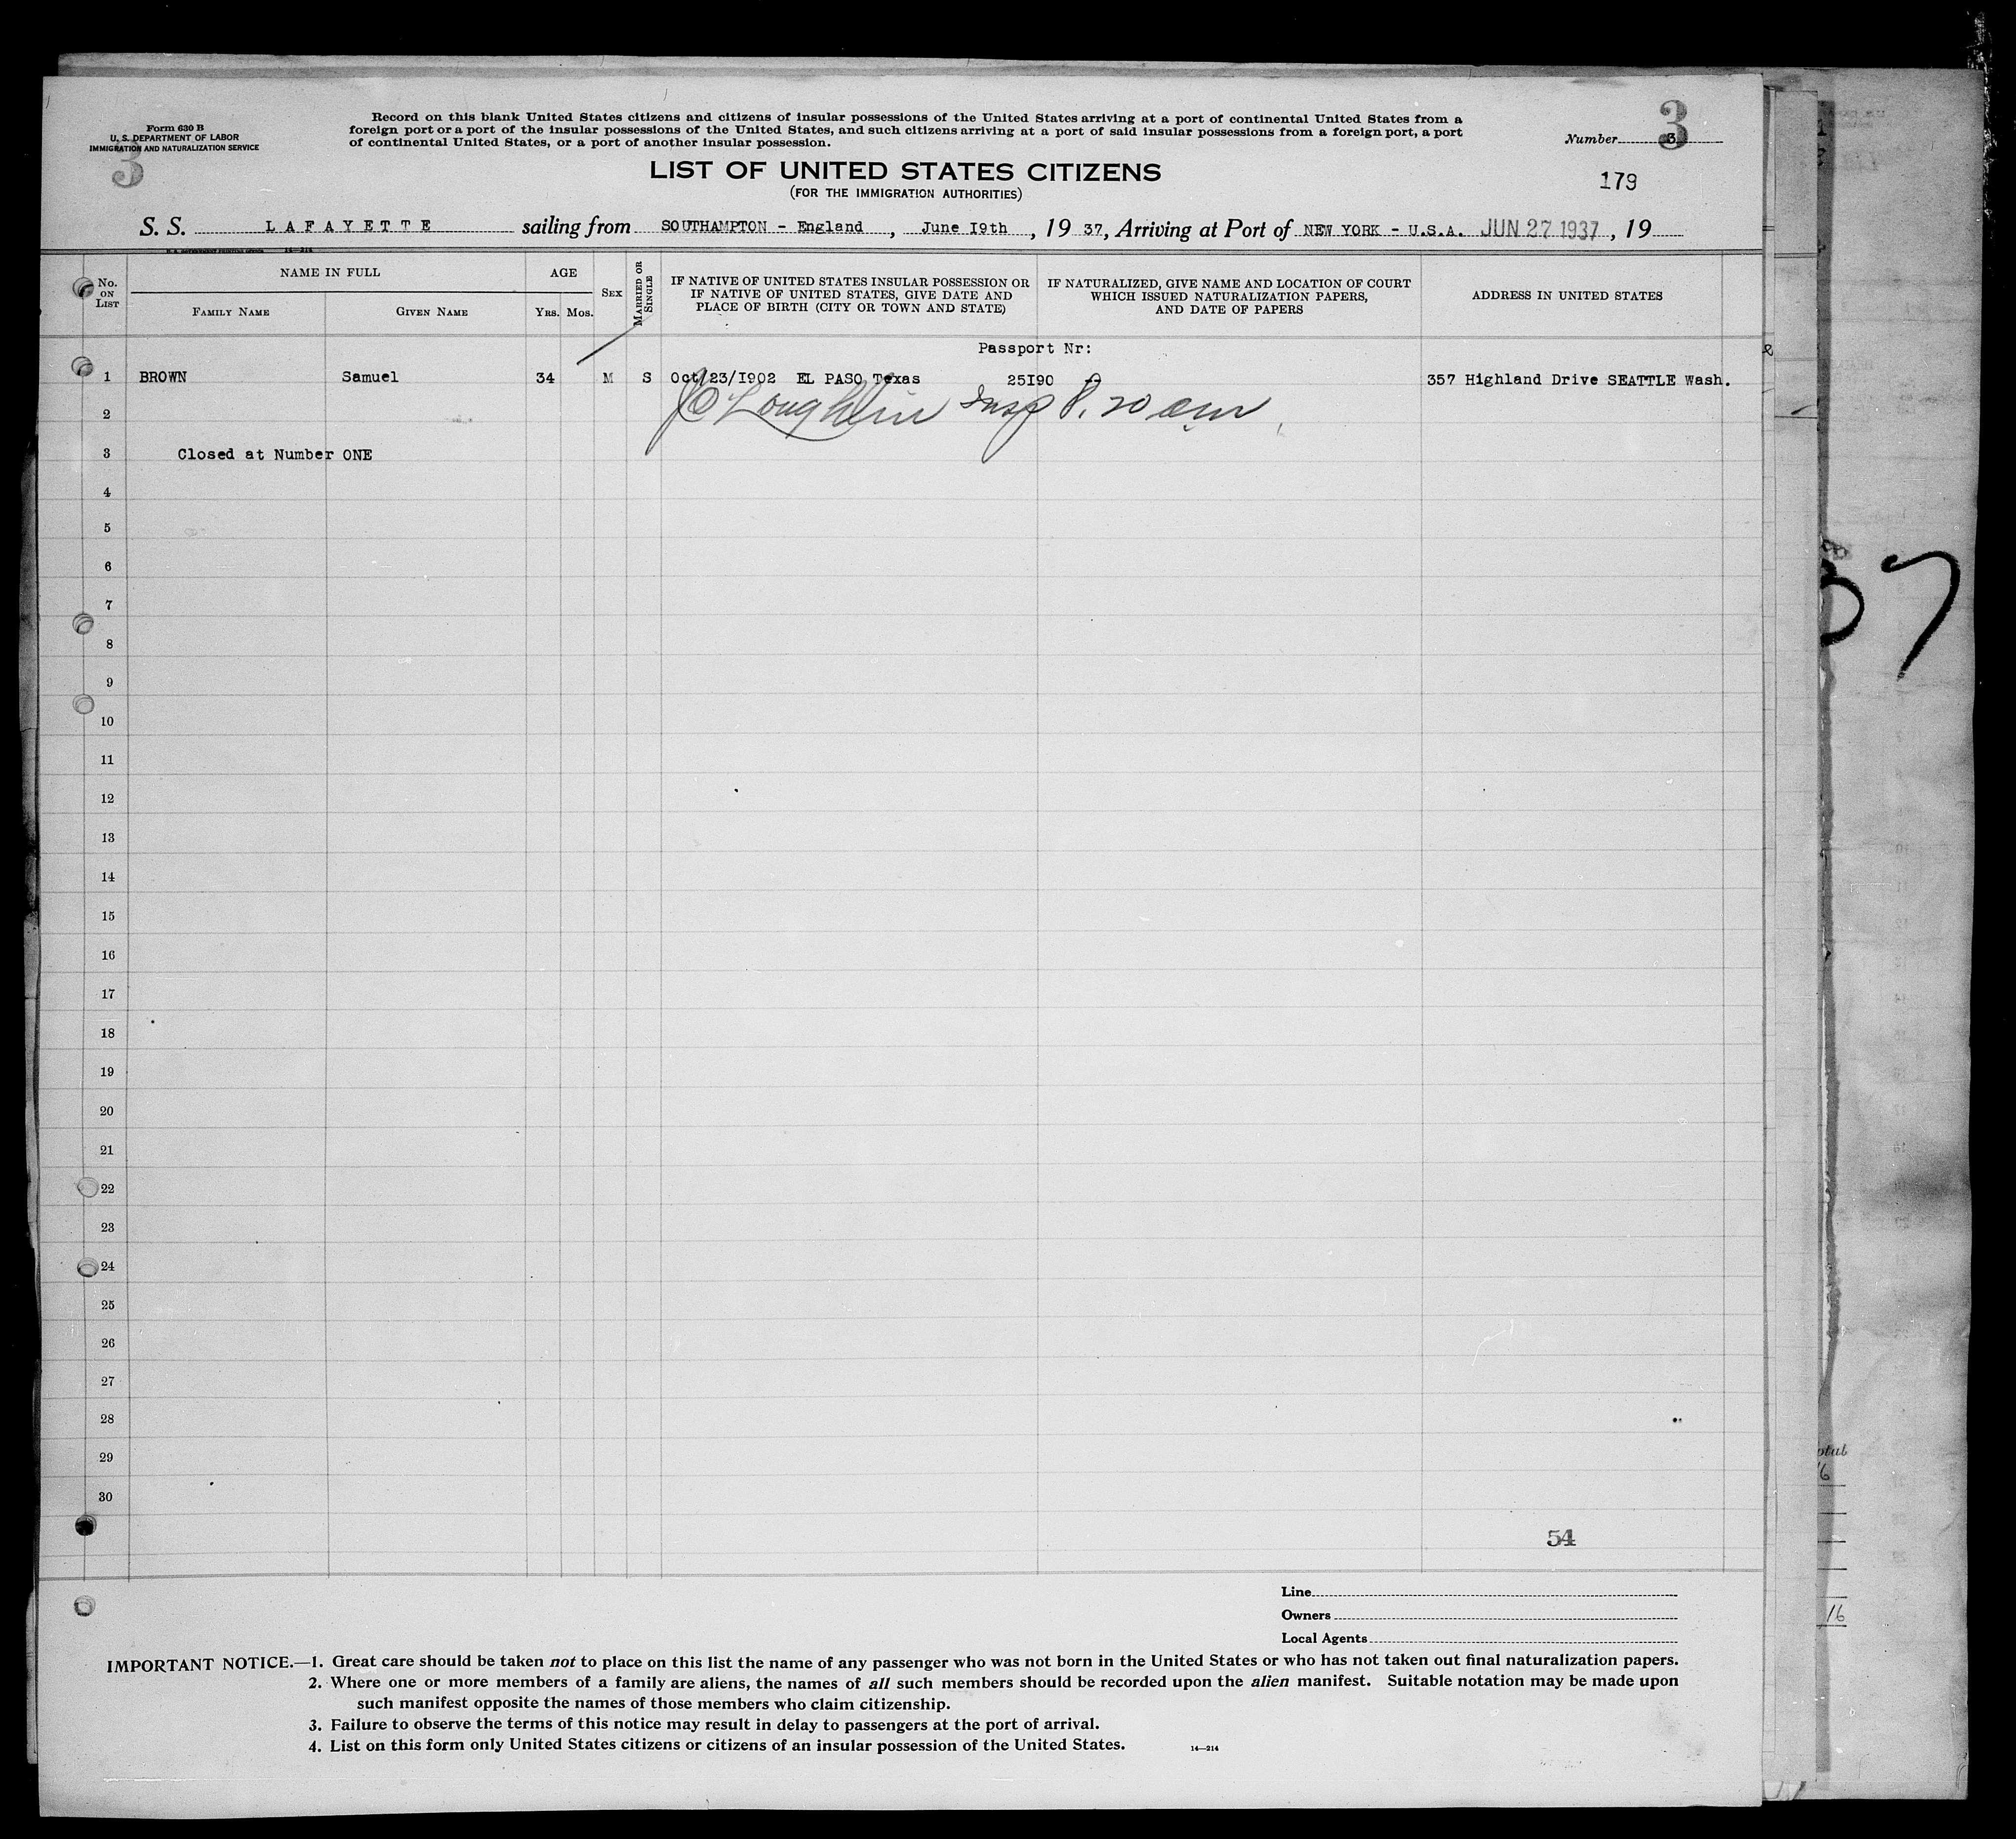 Form 630 B
U. S. DEPARTMENT OF LABOR
IMMIGRATION AND NATURALIZATION SERVICE
3
Record on this blank United States citizens and citizens of insular possessions of the United States arriving at a port of continental United States from a
foreign port or a port of the insular possessions of the United States, and such citizens arriving at a port of said insular possessions from a foreign port, a port
of continental United States, or a port of another insular possession.
3
Number 3
LIST OF UNITED STATES CITIZENS
(FOR THE IMMIGRATION AUTHORITIES)
179
S. S. LAFAYETTE sailing from SOUTHAMPTON - England, June I9th, 19 37, Arriving at Port of NEW YORK - U.S.A. JUN 27 1937, 19
U. S. GOVERNMENT PRINTING OFFICE 14—214
No. ON LIST
NAME IN FULL
FAMILY NAME
GIVEN NAME
AGE
YRS. MOS.
SEX
MARRIED OR SINGLE
IF NATIVE OF UNITED STATES INSULAR POSSESSION OR
IF NATIVE OF UNITED STATES, GIVE DATE AND
PLACE OF BIRTH (CITY OR TOWN AND STATE)
IF NATURALIZED, GIVE NAME AND LOCATION OF COURT
WHICH ISSUED NATURALIZATION PAPERS,
AND DATE OF PAPERS
ADDRESS IN UNITED STATES
Passport Nr:
1 BROWN Samuel 34 M S Oct/23/I902 EL PASO Texas 25I90 357 Highland Drive SEATTLE Wash.
2 Loughlin Insp 8.20 am
3 Closed at Number ONE
4
5
6
7
8
9
10
11
12
13
14
15
16
17
18
19
20
21
22
23
24
25
26
27
28
29
30
54
Line
Owners
Local Agents
IMPORTANT NOTICE.—1. Great care should be taken not to place on this list the name of any passenger who was not born in the United States or who has not taken out final naturalization papers.
2. Where one or more members of a family are aliens, the names of all such members should be recorded upon the alien manifest. Suitable notation may be made upon
such manifest opposite the names of those members who claim citizenship.
3. Failure to observe the terms of this notice may result in delay to passengers at the port of arrival.
4. List on this form only United States citizens or citizens of an insular possession of the United States.
14—214
16